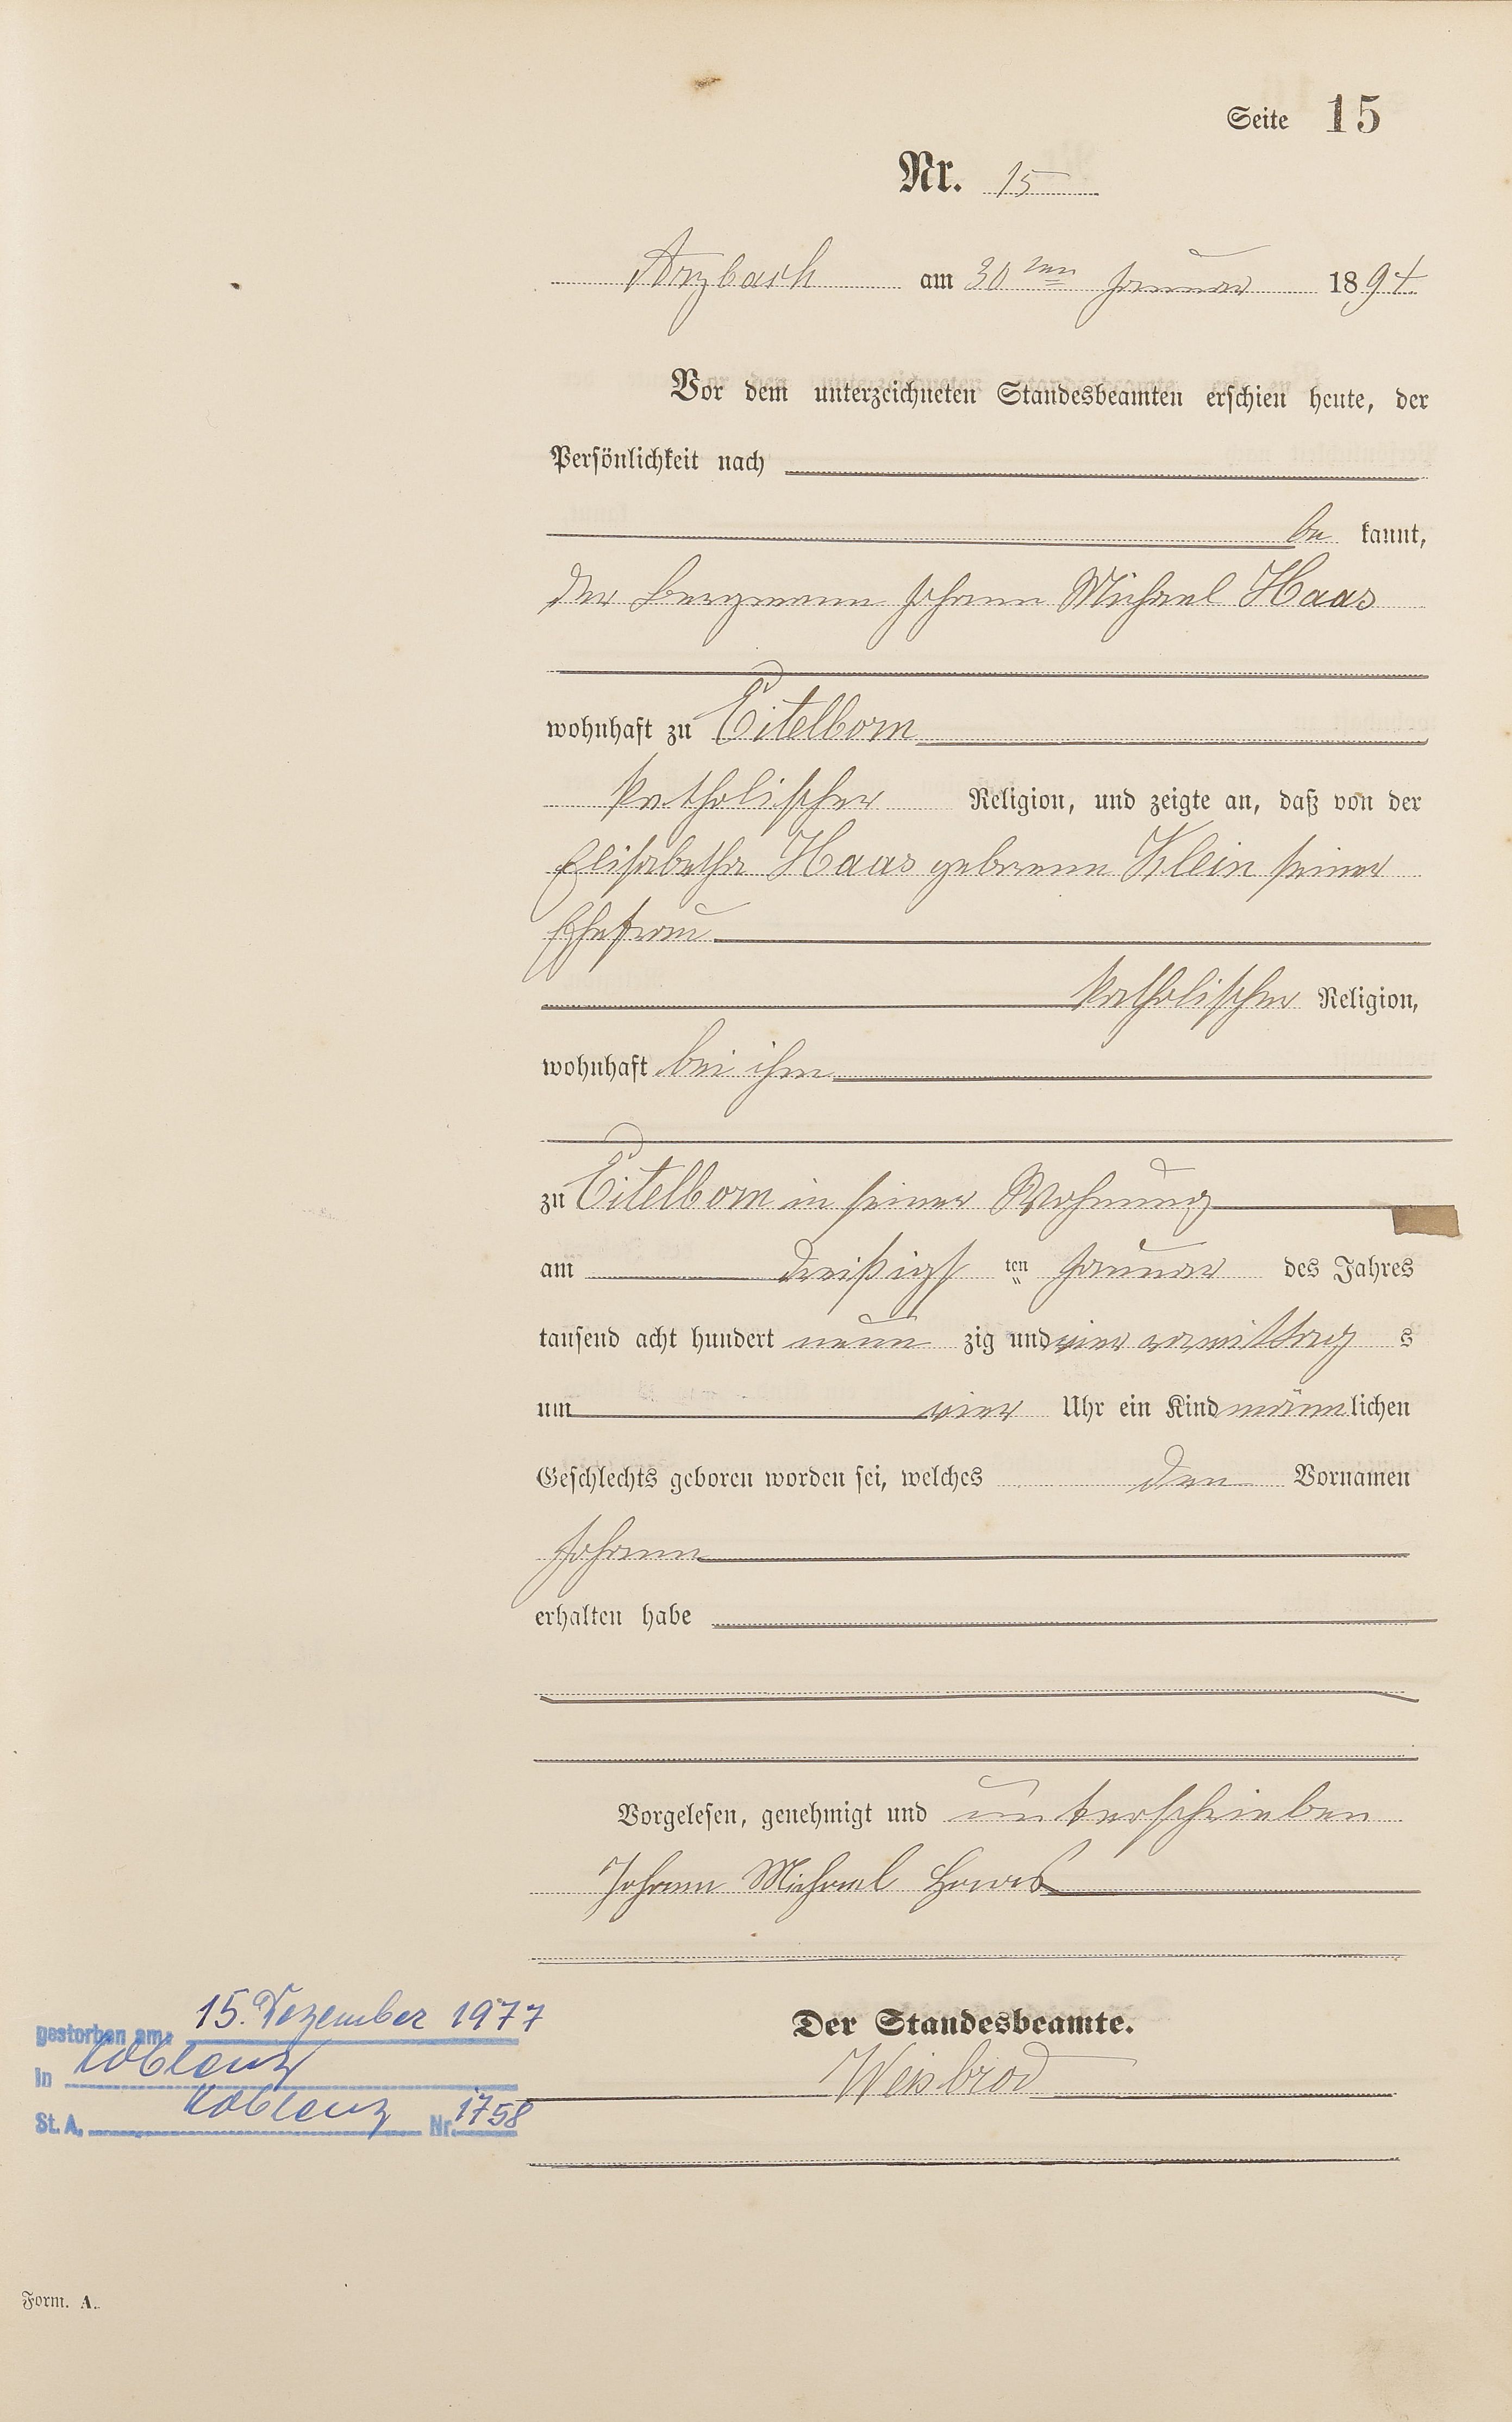 Seite 15
Nr. 15
Arzbach am 30ten Januar 1894.
Vor dem unterzeichneten Standesbeamten erschien heute, der
Persönlichkeit nach
be kannt,
der Bergmann Johann Michael Haas
wohnhaft zu Eitelborn
katholischer Religion, und zeigte an, daß von der
Elisabetha Haas geborene Klein seiner
Ehefrau
katholischer Religion,
wohnhaft bei ihm
zu Eitelborn in seiner Wohnung
am dreißigs ten Januar des Jahres
tausend acht hundert neun zig und vier vormittag s
um vier Uhr ein Kind männlichen
Geschlechts geboren worden sei, welches den Vornamen
Johann
erhalten habe
Vorgelesen, genehmigt und unterschrieben
Johann Michael Haas
Der Standesbeamte.
Weisbrod
gestorben am: 15. Dezember 1977
in Koblenz
St. A. Koblenz Nr. 1758
Form. A.